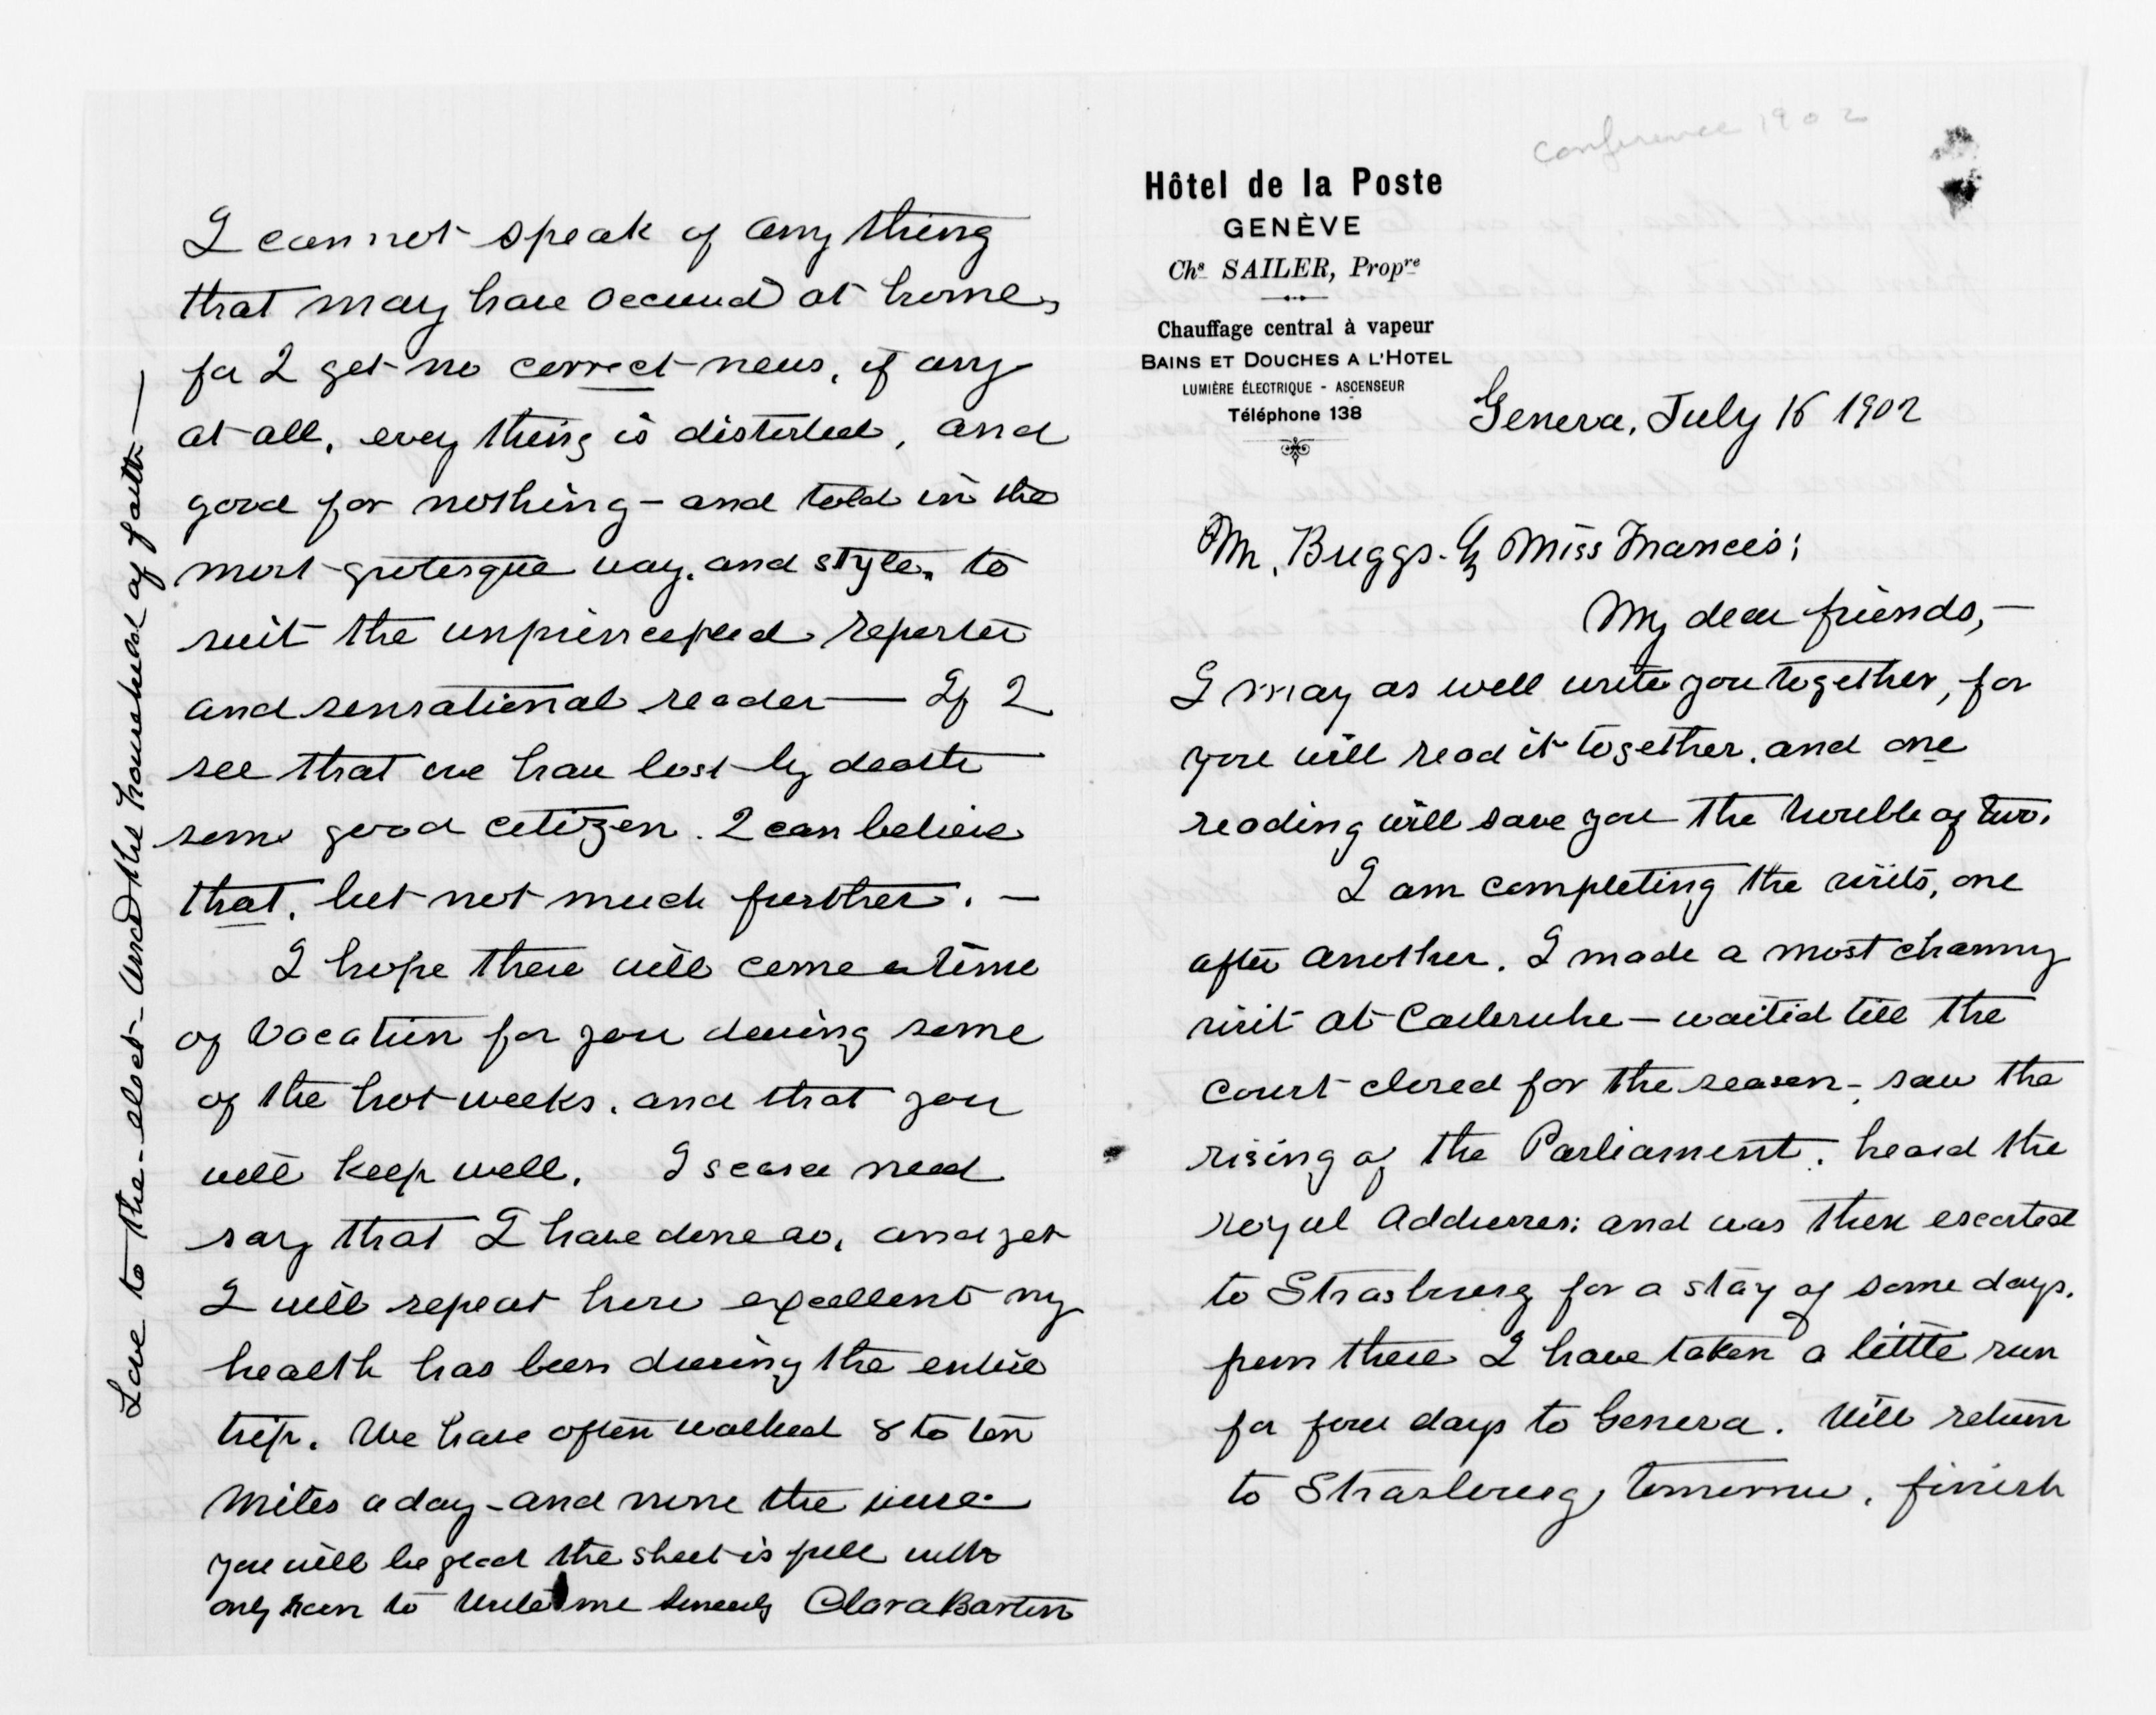 conference 1902
Hôtel de la Poste
GENÈVE
Chs SAILER, Propre
Chauffage central à vapeur
BAINS ET DOUCHES A L'HOTEL
LUMIÈRE ÉLECTRIQUE - ASCENSEUR
Téléphone 138
Geneva, July 16 1902
Mr. Briggs. & Miss Francis;
My dear friends,—
I may as well write you together, for
you will read it together. and one
reading will save you the trouble of two.
I am completing the visits, one
after another. I made a most charming
visit at Carlsruhe — waited till the
court closed for the season, saw the
rising of the Parliament. heard the
royal Addresses; and was then escorted
to Strasburg for a stay of some days.
from there I have taken a little run
for four days to Geneva. Will return
to Strasburg tomorrow, finish
I cannot speak of any thing
that may have occurred at home,
for I get no correct news, if any
at all. every thing is distorted, and
good for nothing — and told in the
most grotesque way. and style, to
suit the unprincepled reporter
and sensational reader — If I
see that we have lost by death
some good citizen. I can believe
that, but not much further. —
I hope there will come a time
of vacation for you during some
of the hot weeks. and that you
will keep well. I scarce need
say that I have done so, and yet
I will repeat how excellent my
health has been during the entire
trip. We have often walked 8 to ten
miles a day — and none the worse
you will be glad the sheet is full with
only room to write me sincerely Clara Barton
Love to the elect — and the household of faith —